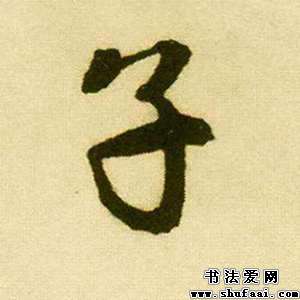 子
书法爱网
www.shufaai.com